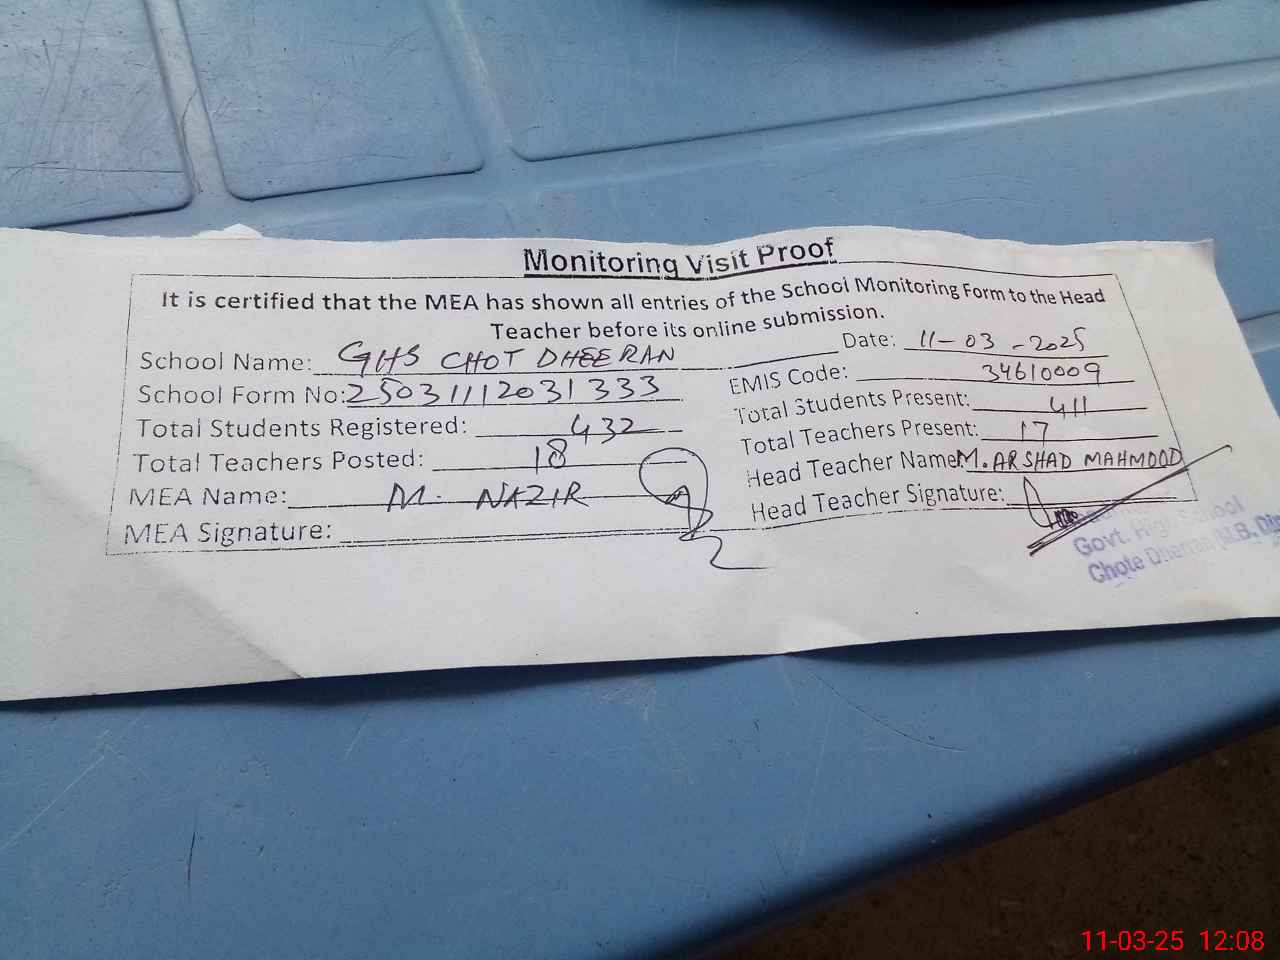 Monitoring Visit Proof
It is certified that the MEA has shown all entries of the School Monitoring Form to the Head
Teacher before its online submission.
School Name: GHS CHOT DHEERAN Date: 11-03-2025
School Form No: 25031112031333 EMIS Code: 34610009
Total Students Registered: 432 Total Students Present: 411
Total Teachers Posted: 18 Total Teachers Present: 17
MEA Name: M. NAZIR Head Teacher Name: M. ARSHAD MAHMOOD
MEA Signature: Head Teacher Signature:
Govt. High School
Chote Dheeran (M.B.Din
11-03-25 12:08